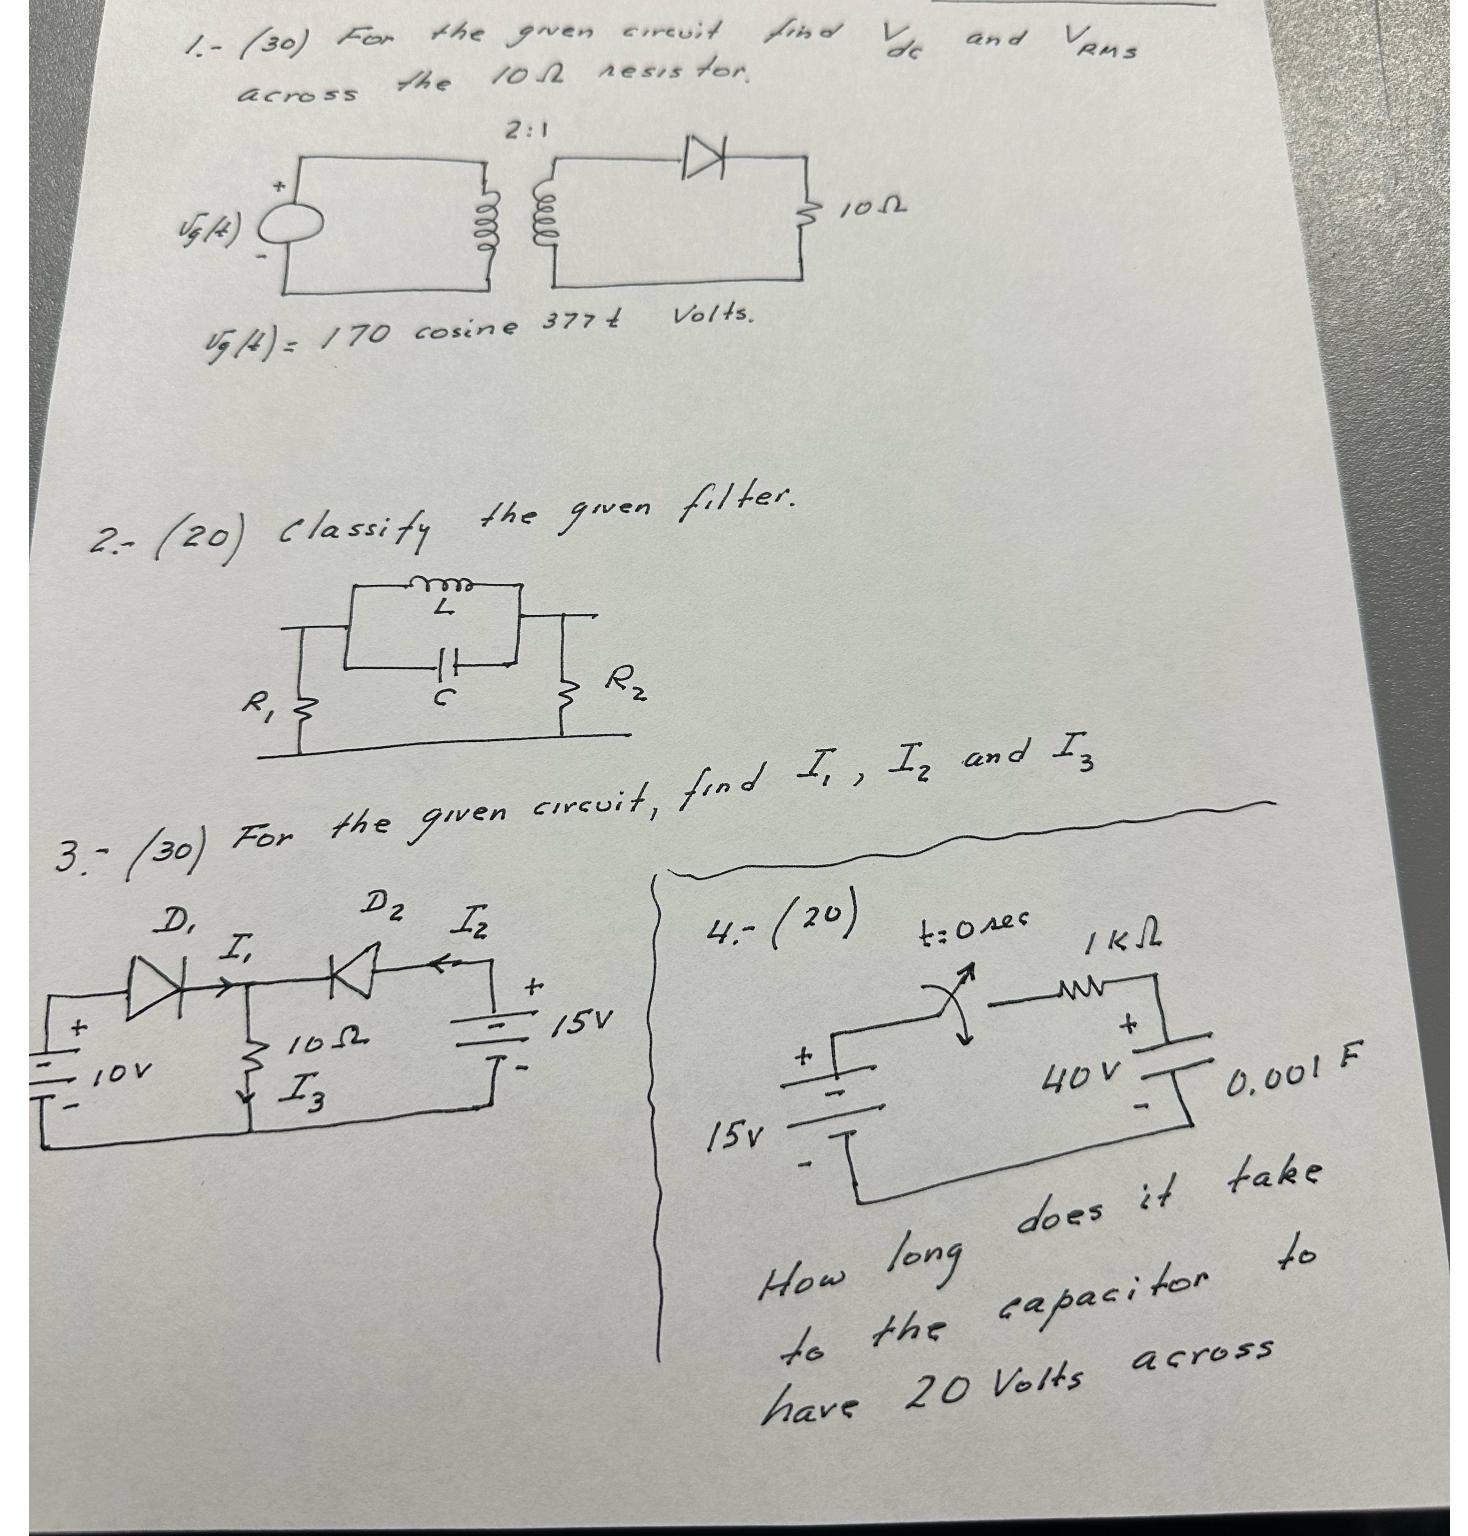 1.- (30) For the given circuit find Vdc and VRMS
across the 10Ω resistor.
2:1
+
vg(t)
-
10Ω
vg(t) = 170 cosine 377t Volts.
2.- (20) Classify the given filter.
L
C
R1
R2
3.- (30) For the given circuit, find I1, I2 and I3
D1
I1
D2
I2
+
10V
-
10Ω
I3
+
15V
-
4.- (20)
t=0 sec
1KΩ
+
15V
-
+
40V
-
0.001 F
How long does it take
to the capacitor to
have 20 Volts across